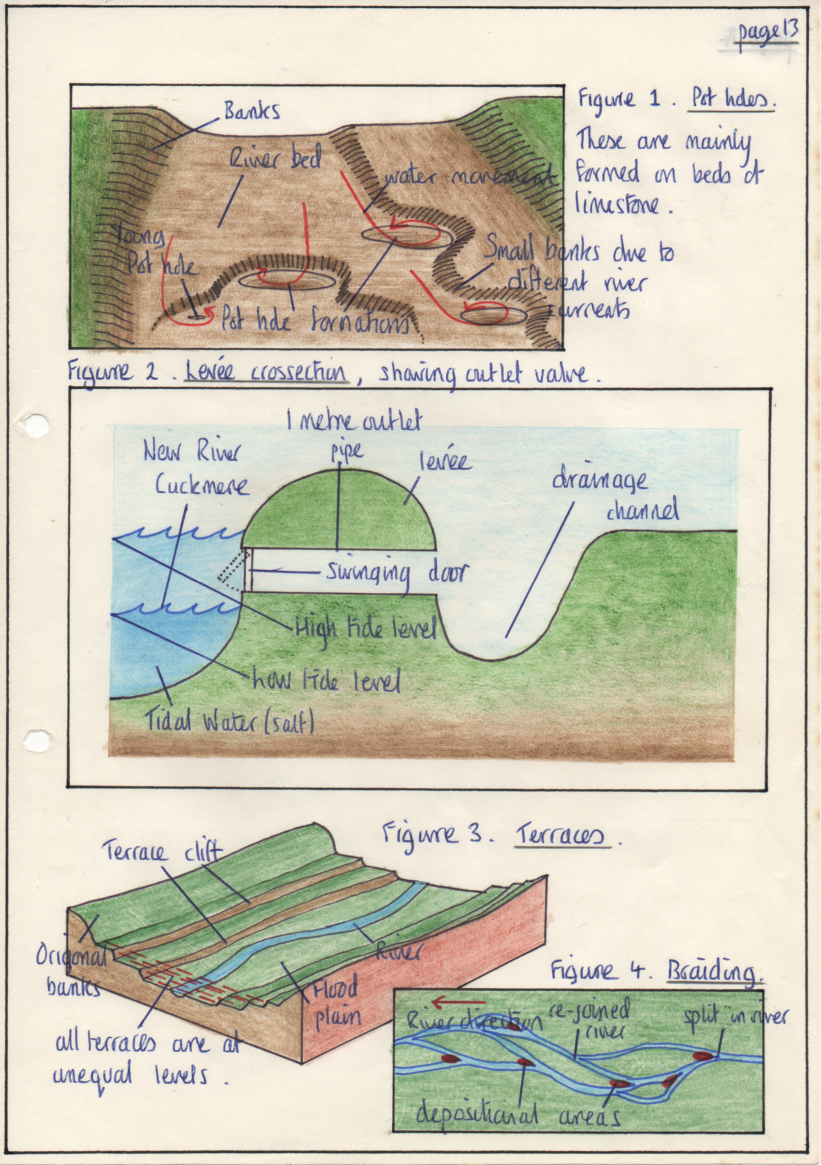 page 13
Figure 1. Pot holes.
These are mainly
formed on beds of
limestone.
Banks
River bed
water movement
Young
Pot hole
Small banks due to
different river
currents
Pot hole formations
Figure 2. Levée crossection, showing outlet valve.
1 metre outlet
pipe
New River
Cuckmere
levée
drainage
channel
Swinging door
High tide level
Low tide level
Tidal Water (salt)
Figure 3. Terraces.
Terrace clift
Origonal
banks
River
Flood
plain
all terraces are at
unequal levels.
Figure 4. Braiding.
River direction
re-joined
river
split in river
depositional areas